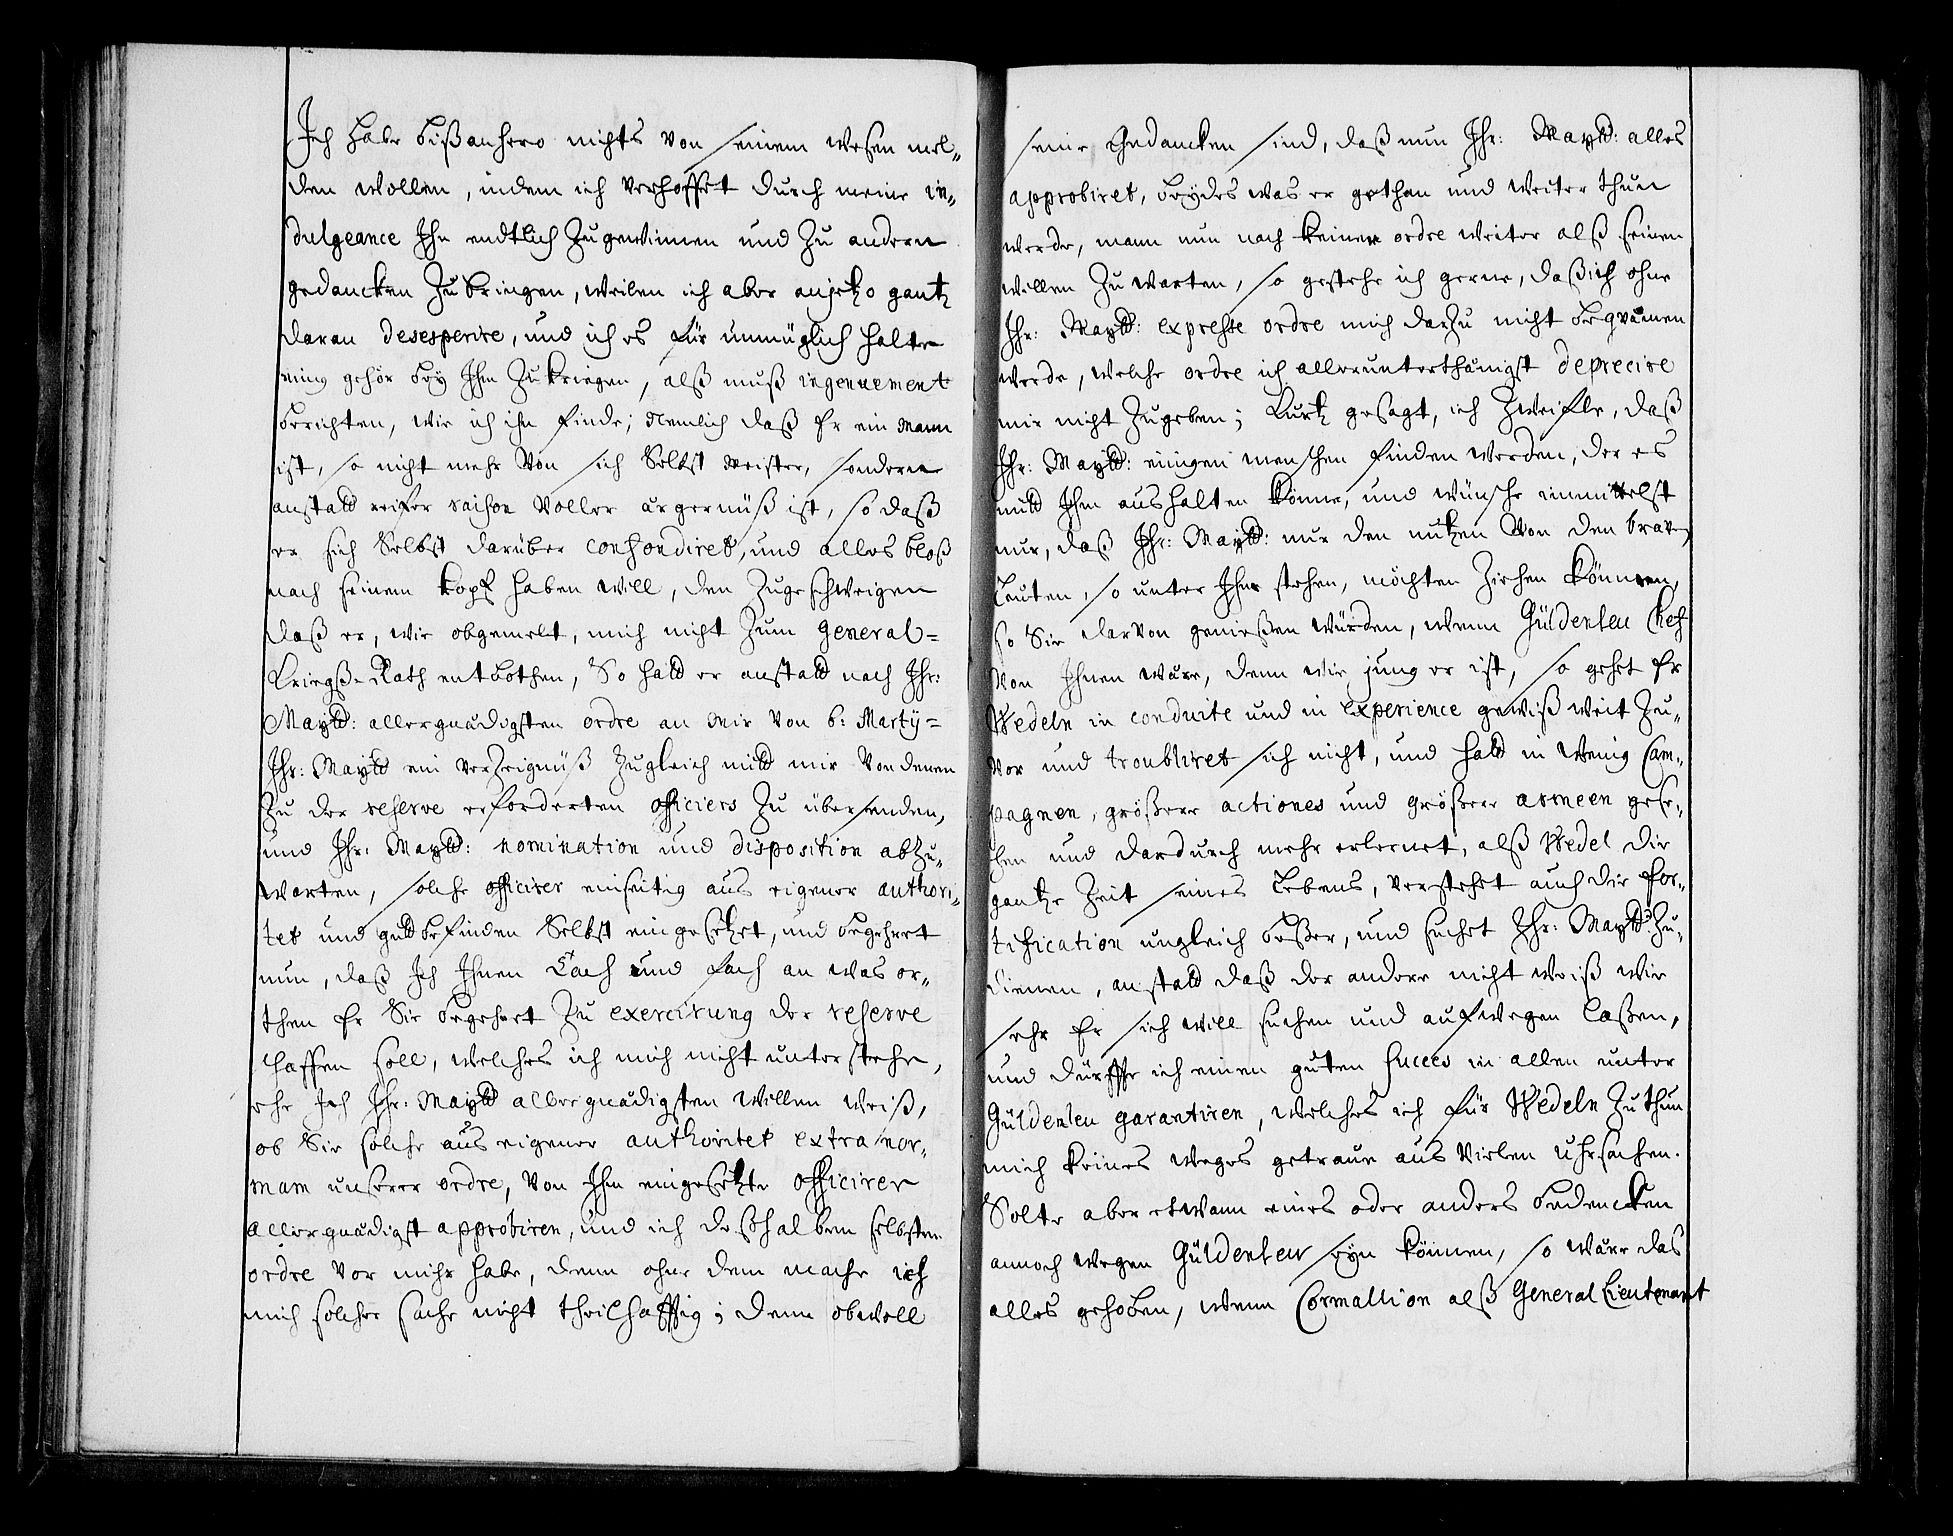 Ich habe bißanhero nichts von seinem wesen mel„
den wollen, indem ich verhoffet durch meine in„
dulgeance Ihn endtlich Zugewinnen und Zu andern
gedancken Zubringen, weilen ich aber anjetzo gantz
daran desesperire, und ich es für unmüglich halte
einig gehör bey Ihm Zukriegen, alß muß ingenuement
berichten, wie ich ihn finde; Nemlich daß Er ein Mann
ist, so nicht mehr von sich Selbst Meister, sondern
anstald reifer raison voller ärgernüß ist, so daß
er sich Selbst darüber confondiret, und alles bloß
nach seinem kopf haben will, den Zugeschweigen
daß er, wie obgemelt, mich nicht Zum General=
Kriegß-Rath entbothen, So hald er anstald nach Ihr:
Maytd: allergnädigsten ordre an Mir von 6: Martij=
Ihr: Maytd ein verZeignüß Zugleich mild mir von denen
Zu der reserve erforderten officiers Zu übersenden,
und Ihr: Maytd: nomination und disposition abZu„
warten, solche officirer einseitig aus eigener authori„
tet und guldbefinden Selbst eingesetzet, und begehret
nun, daß Ich Ihnen Tach und fach an was or„
then Er Sie begehret Zu exercirung der reserve
schaffen soll, welches ich mich nicht unterstehe,
ehe Ich Ihr: Maytd allergnädigsten willen weiß,
ob Sie solche aus eigener authoritet extra nor„
mam unserer ordre, von Ihm eingesetzte officirer
allergnädigst approbiren, und ich deßhalben selbsten
ordre vor mihr habe, denn ohne dem mache ich
mich solcher sache nicht theilhafftig; denn obwoll
seine Gedancken sind, daß nun Ihr: Maytd: alles
approbiret, beydes was er gethan und weiter thun
werde, mann nun nach keiner ordre weiter alß seinen
willen Zu warten, so gestehe ich gerne, daß ich ohne
Ihr: Maytd: expresse ordre mich darZu nicht beqvämen
werde, welche ordre ich allerunterthänigst deprecire
mir nicht Zugeben; Kurtz gesagt, ich Zweifle, daß
Ihr: Maytd: einigen menschen finden werden, der es
mild Ihm aushalten könne, und wünsche immittelst
nur, daß Ihr: Maytd: nur den nutzen von den braven
Leuten, so unter Ihm stehen, möchten Ziehen können,
so Sie darvon genießen würden, wenn Güldenleu Chef
von Ihnen wäre, denn wie jung er ist, so gehet Er
Wedeln in conduite und in Experience gewiß weit Zu„
vor und troubliret sich nicht, und hald in wenig Cam„
pagnen, größere actiones und größere armeen gese„
hen und dardurch mehr erlernet, alß Wedel die
gantze Zeit seines Lebens, verstehet auch die for„
tification ungleich beßer, und suchet Ihr: Maytd: Zu„
dienen, anstald daß der andere nicht weiß wie
sehr Er sich will suchen und aufwegen laßen,
und dürffte ich einen guten succes in allen unter
Güldenleu garantiren, welches ich für Wedeln Zu thun
mich keines weges getraue aus vielen uhrsachen.
Solte aber etwann eines oder anders bedencken
annoch wegen Güldenleu seyn können, so wäre das
alles gehoben, wenn Cormallion alß General Lieutenant